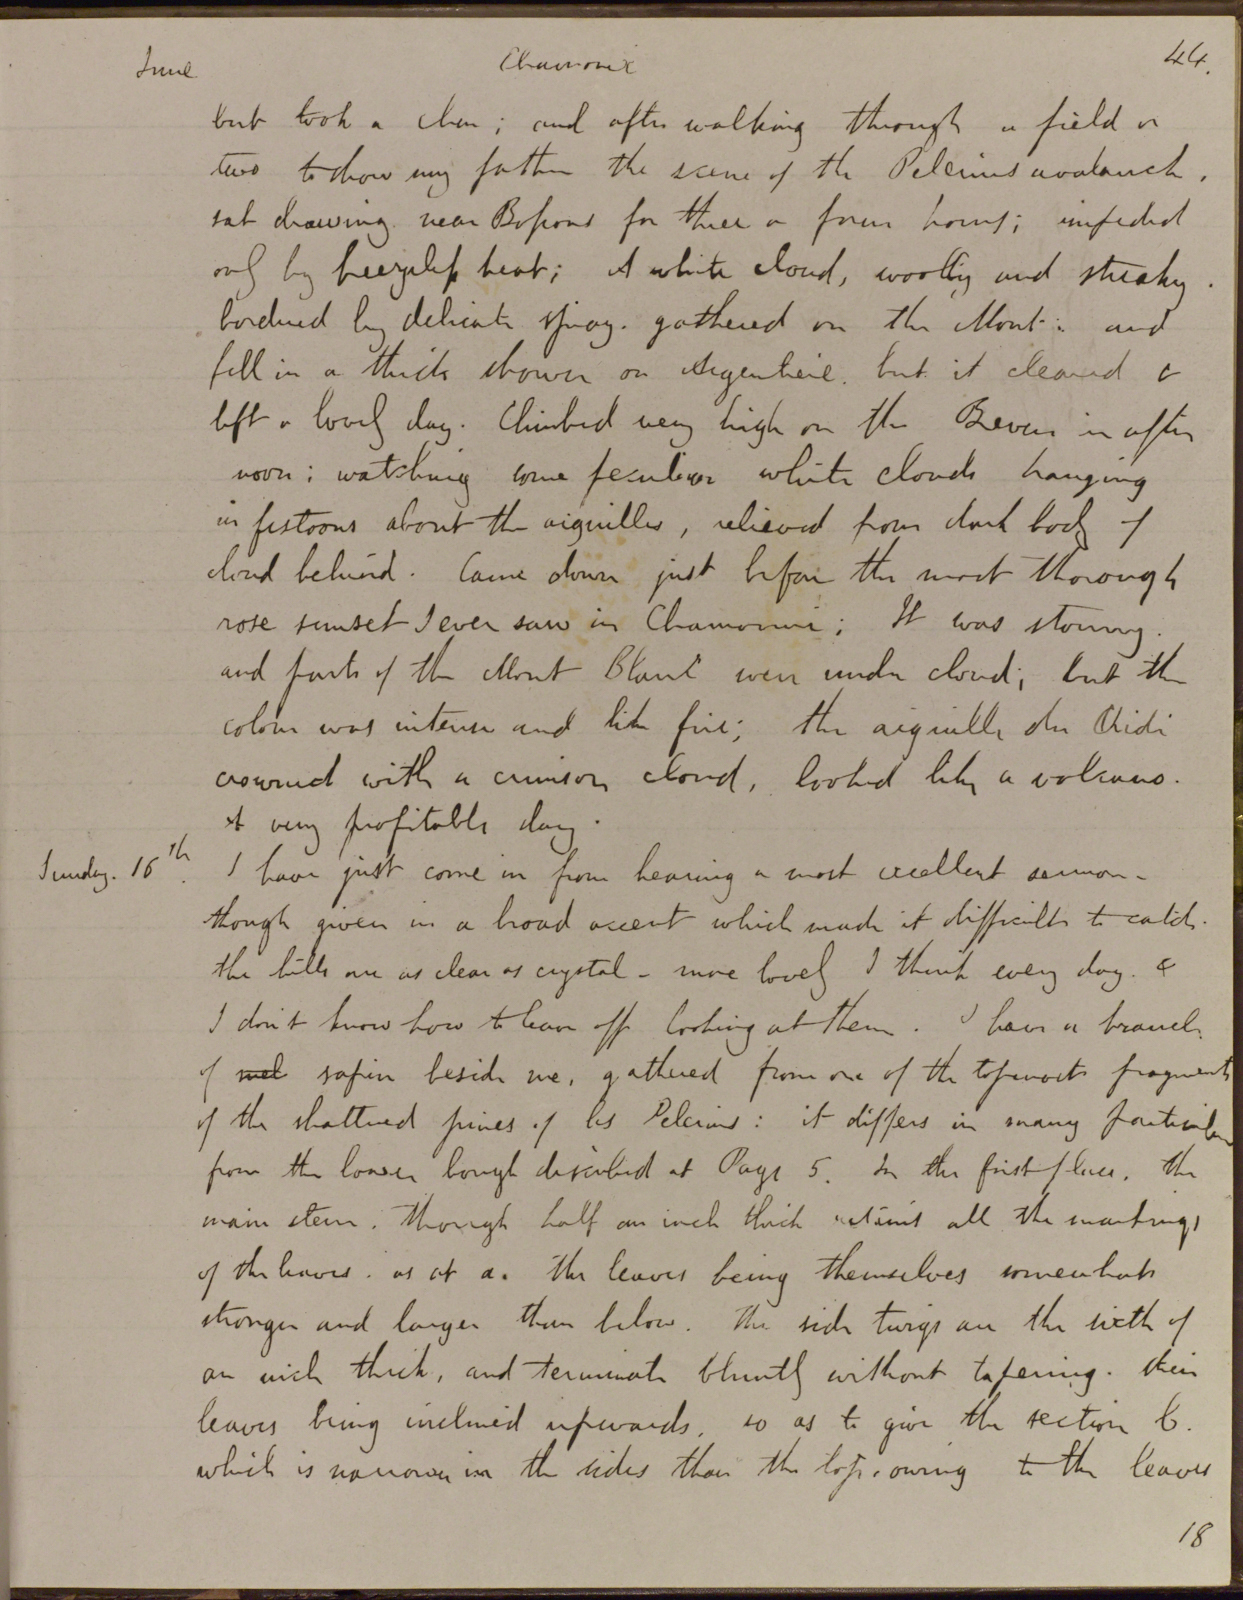 June
Chamonix
44.
but took a char; and after walking through a field or
two to show my father the scene of the Pelerins avalanch,
sat drawing near Bossons for three or four hours; impeded
only by heat; A white cloud, woolly and streaky.
bordered by delicate spray. gathered on the Mont: and
fell in a thick shower on Argentiere. but it cleared &
left a lovely day. Climbed very high on the Breven in after
noon; watching some peculiar white clouds hanging
in festoons about the aiguilles, relieved from dark body of
cloud behind. Came down just before the most thorough
rose sunset I ever saw in Chamouni; It was stormy.
and parts of the Mont Blanc were under cloud; but the
colour was intense and like fire; the aiguille du Midi
crowned with a crimson cloud, looked like a volcano.
A very profitable day.
Sunday. 16th.
I have just come in from hearing a most excellent sermon -
though given in a broad accent which made it difficult to catch.
the hills are as clear as crystal - more lovely I think every day. &
I don't know how to leave off looking at them. I have a branch
of mel sapin beside me, gathered from one of the topmost fragments
of the shattered pines of les Pelerins: it differs in many particulars
from the lower bough described at Page 5. In the first place, the
main stem, though half an inch thick retains all the markings
of the leaves. as at a. the leaves being themselves somewhat
stronger and larger than below. The side twigs are the sixth of
an inch thick, and terminate bluntly without tapering. their
leaves being inclined upwards, so as to give the section b.
which is narrower in the sides than the top, owing to the leaves
18